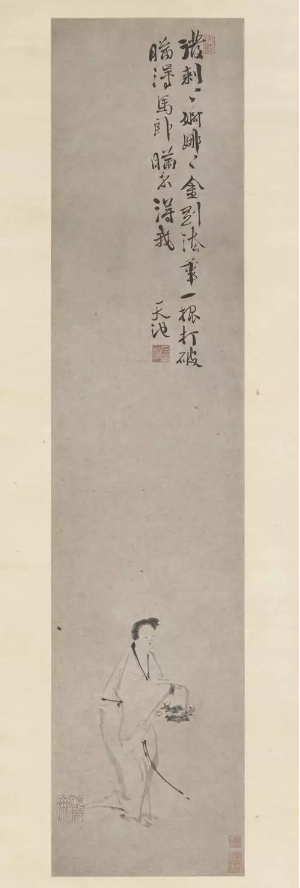 潑剌〻婀娜〻金剛法華一棍打破
瞞得馬郎瞞不得我
天池